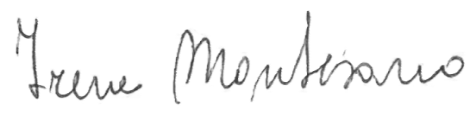 Irene Montesano